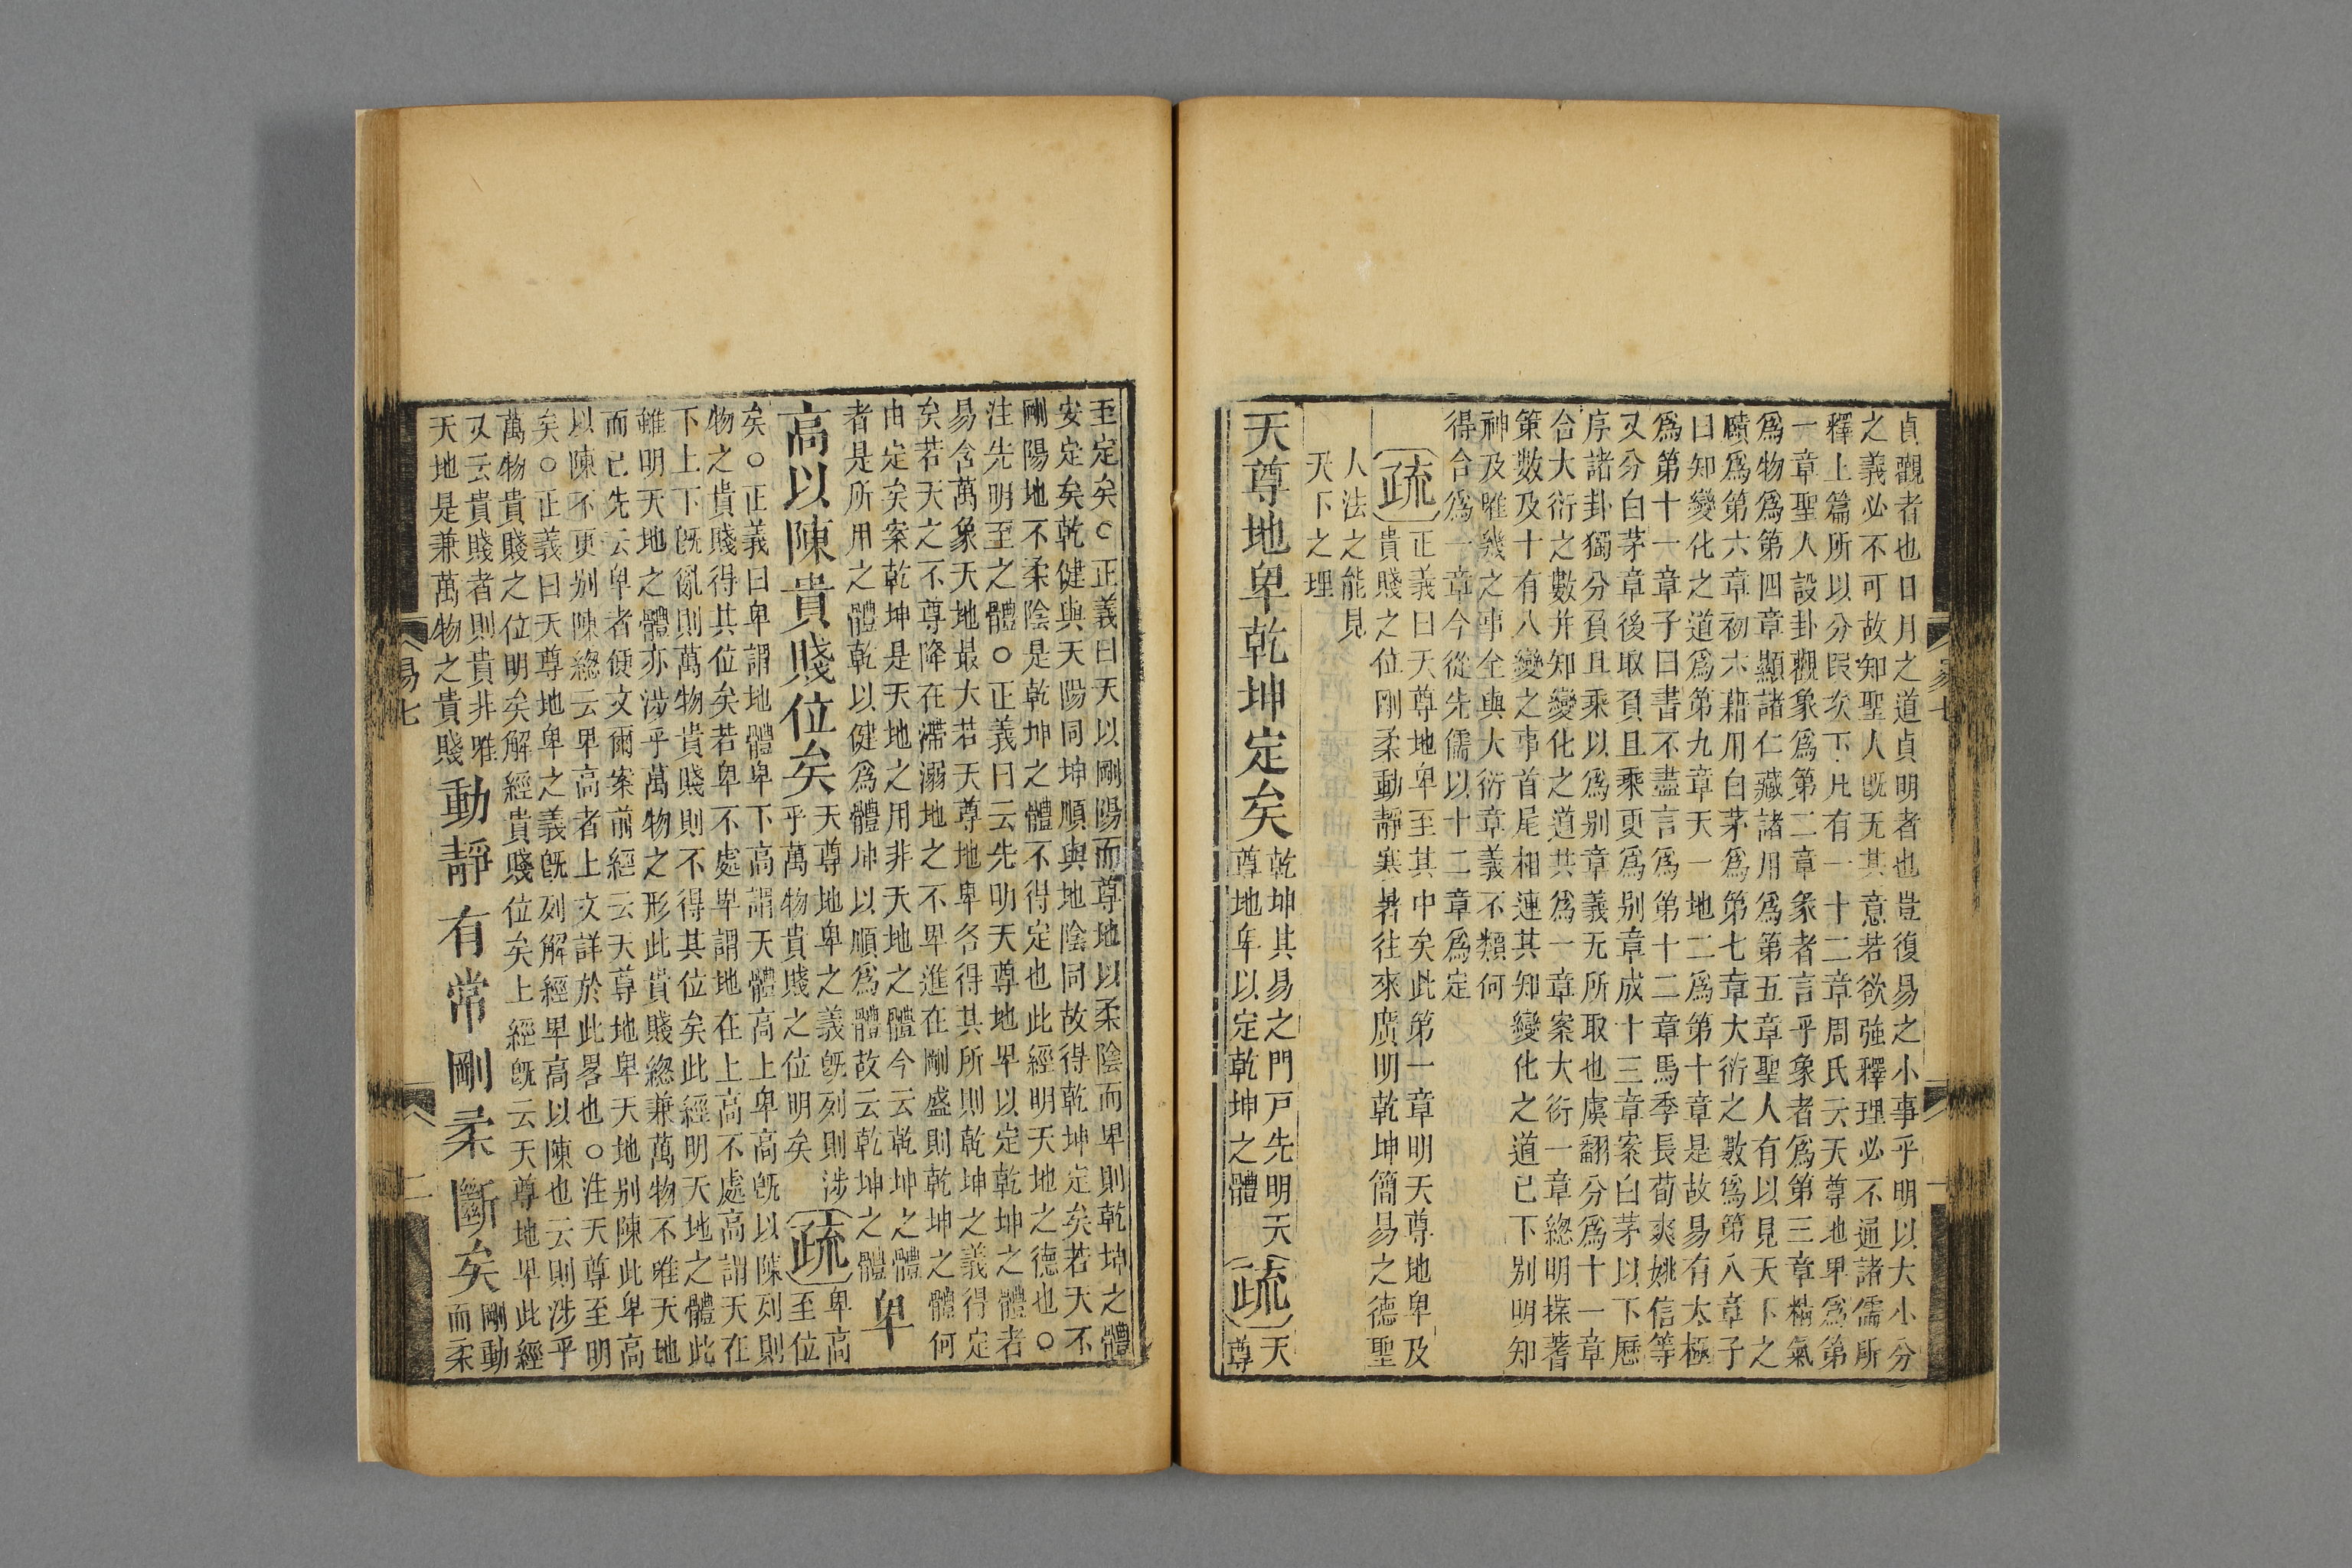 貞觀者也日月之道貞明者也豈復易之小事乎明以大小分
之義必不可故知聖人旣无其意若欲強釋理必不通諸儒所
釋上篇所以分段次下凡有一十二章周氏云天尊地卑爲第
一章聖人設卦觀象爲第二章彖者言乎象者爲第三章精氣
爲物爲第四章顯諸仁藏諸用爲第五章聖人有以見天下之
賾爲第六章初六藉用白茅爲第七章大衍之數爲第八章子
曰知變化之道爲第九章天一地二爲第十章是故易有太極
爲第十一章子曰書不盡言爲第十二章馬季長荀爽姚信等
又分白茅章後取負且乘更爲别章成十三章案白茅以下歷
序諸卦獨分負且乘以爲别章義无所取也虞翻分爲十一章
合大衍之數并知變化之道共爲一章案大衍一章總明揲蓍
策數及十有八變之事首尾相連其知變化之道已下别明知
神及唯幾之事全與大衍章義不類何
得合爲一章今從先儒以十二章爲定
疏正義曰天尊地卑至其中矣此第一章明天尊地卑及
貴賤之位剛柔動靜寒暑往來廣明乾坤簡易之德聖
人法之能見
天下之理
天尊地卑乾坤定矣
乾坤其易之門戶先明天
尊地卑以定乾坤之體
疏
天
尊
至定矣○正義曰天以剛陽而尊地以柔陰而卑則乾坤之體
安定矣乾健與天陽同坤順與地陰同故得乾坤定矣若天不
剛陽地不柔陰是乾坤之體不得定也此經明天地之德也○
注先明至之體○正義曰云先明天尊地卑以定乾坤之體者
易含萬象天地最大若天尊地卑各得其所則乾坤之義得定
矣若天之不尊降在滯溺地之不卑進在剛盛則乾坤之體何
由定矣案乾坤是天地之用非天地之體今云乾坤之體
者是所用之體乾以健爲體坤以順爲體故云乾坤之體
卑
高以陳貴賤位矣
天尊地卑之義旣列則涉
乎萬物貴賤之位明矣
疏
卑高
至位
矣○正義曰卑謂地體卑下高謂天體高上卑高旣以陳列則
物之貴賤得其位矣若卑不處卑謂地在上高不處高謂天在
下上下旣亂則萬物貴賤則不得其位矣此經明天地之體此
雖明天地之體亦涉乎萬物之形此貴賤總兼萬物不唯天地
而已先云卑者便文爾案前經云天尊地卑天地别陳此卑高
以陳不更别陳總云卑高者上文詳於此畧也○注天尊至明
矣○正義曰天尊地卑之義旣列解經卑高以陳也云則涉乎
萬物貴賤之位明矣解經貴賤位矣上經旣云天尊地卑此經
又云貴賤者則貴非唯
天地是兼萬物之貴賤
動靜有常剛柔斷矣
剛動
而柔
易七
二